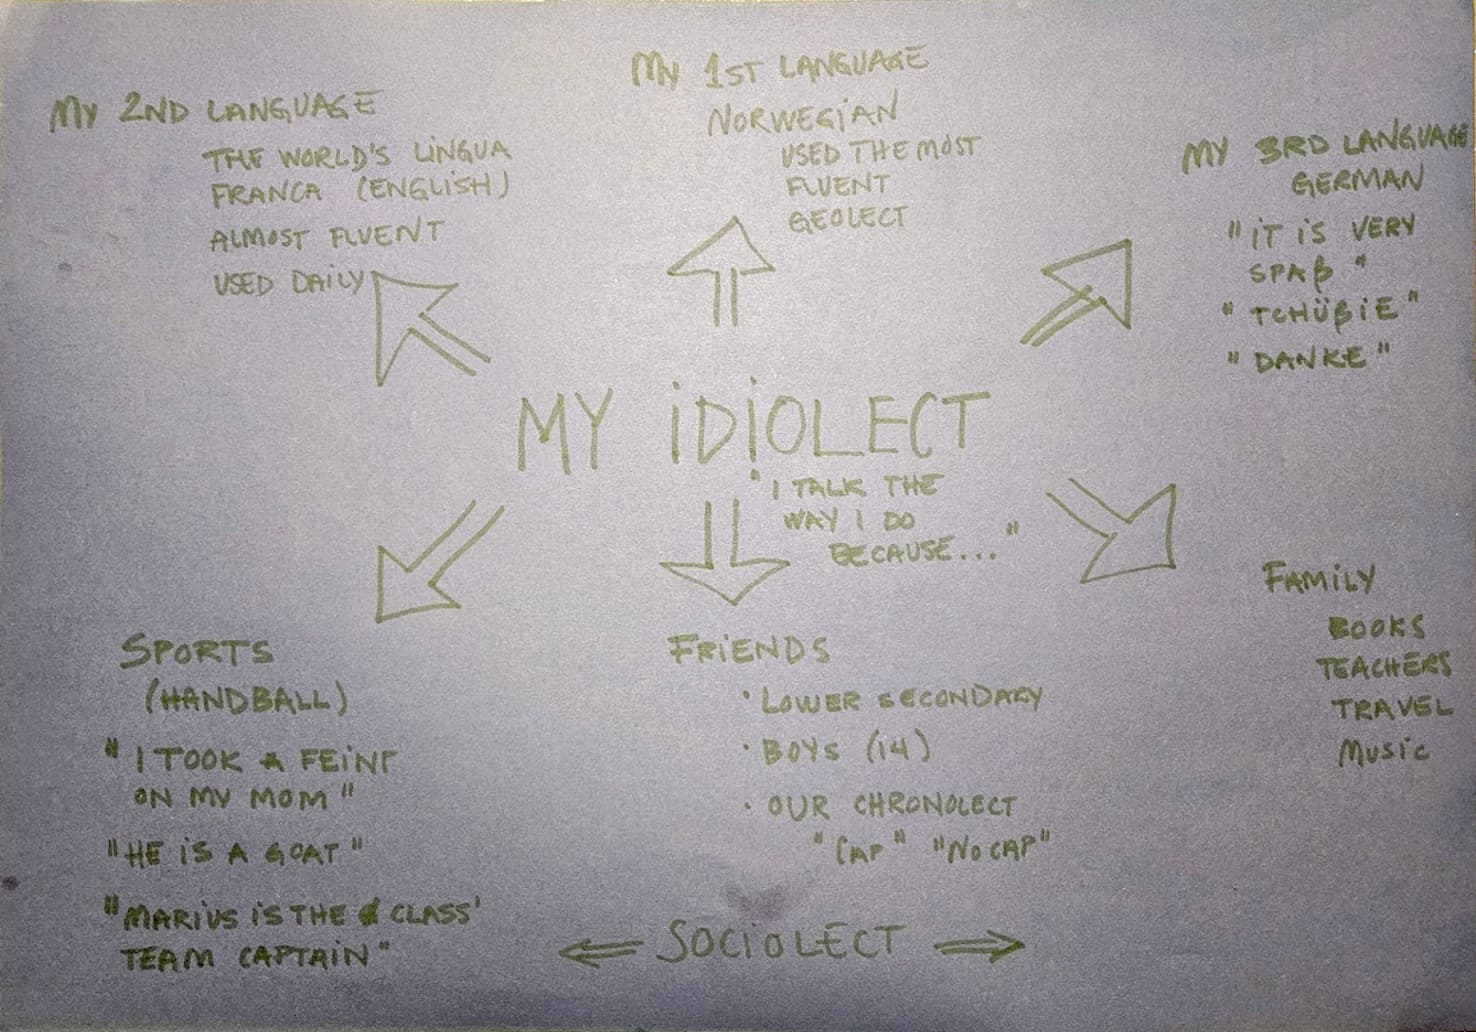 MY 1ST LANGUAGE
NORWEGIAN
USED THE MOST
FLUENT
GEOLECT
MY 2ND LANGUAGE
THE WORLD'S LINGUA
FRANCA (ENGLISH)
ALMOST FLUENT
USED DAILY
MY 3RD LANGUAGE
GERMAN
"IT IS VERY
SPAß"
"TCHÜßIE"
"DANKE"
MY IDIOLECT
"I TALK THE
WAY I DO
BECAUSE..."
SPORTS
(HANDBALL)
"I TOOK A FEINT
ON MY MOM"
"HE IS A GOAT"
"MARIUS IS THE CLASS'
TEAM CAPTAIN"
FRIENDS
• LOWER SECONDARY
• BOYS (14)
• OUR CHRONOLECT
"CAP" "NO CAP"
FAMILY
BOOKS
TEACHERS
TRAVEL
MUSIC
SOCIOLECT